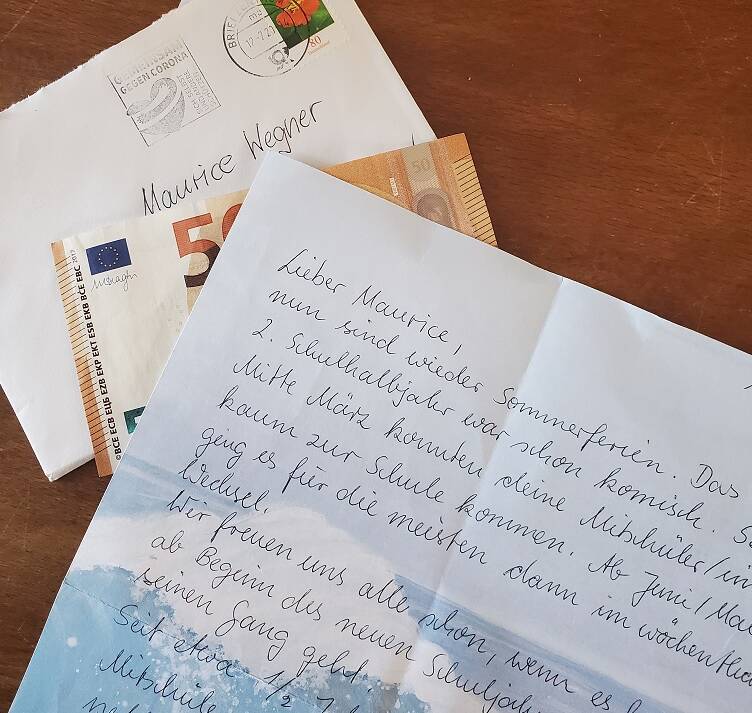 BRIEF
17.7.20
80
GEMEINSAM
GEGEN CORONA
Maurice Wegner
50
50
©BCE ECB ЕЦБ EZB EKP EKT ESB EKB BĊE EBC 2017
Lieber Maurice,
nun sind wieder Sommerferien. Das
2. Schulhalbjahr war schon komisch.
Mitte März konnten deine Mitschüler/in
kaum zur Schule kommen. Ab Juni/Mai
ging es für die meisten dann im wöchentlich
Wechsel.
Wir freuen uns alle schon, wenn es
ab Beginn des neuen Schuljah
seinen Gang geht.
Seit etwa 1/2
Mitschüle